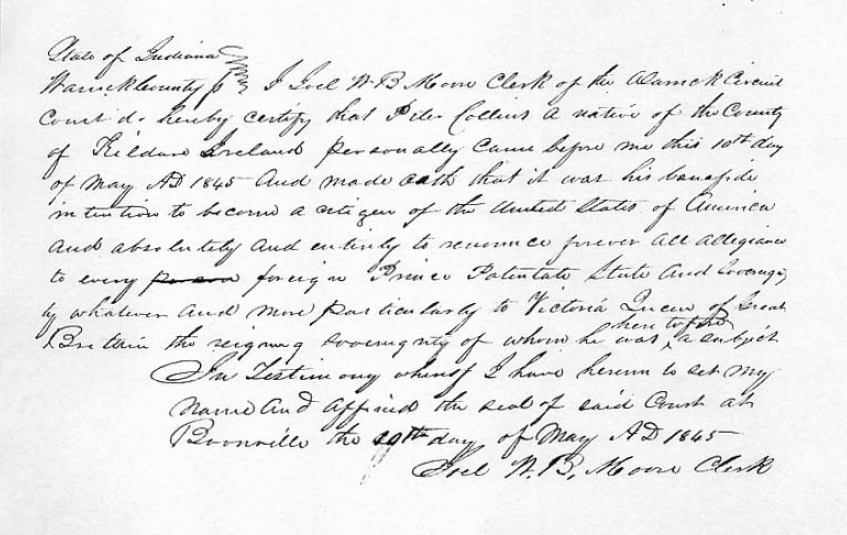 State of Indiana
Warrick County ss I Joel W B Moore Clerk of the Warrick Circuit
Court do hereby certify that Peter Collins a native of the County
of Kildare Ireland personally came before me this 10th day
of May AD 1845 and made oath that it was his bonafide
intention to become a citizen of the United States of America
and absolutely and entirely to renounce forever all allegiance
to every person foreign Prince Potentate State and Sovereign
ty whatever and more particularly to Victoria Queen of Great
heretofore
Brittain the reigning sovereignty of whom he was a subject
In Testimony whereof I have hereun to set my
name and affixed the seal of said Court at
Boonville the 10th day of May AD 1845
Joel W. B. Moore Clerk